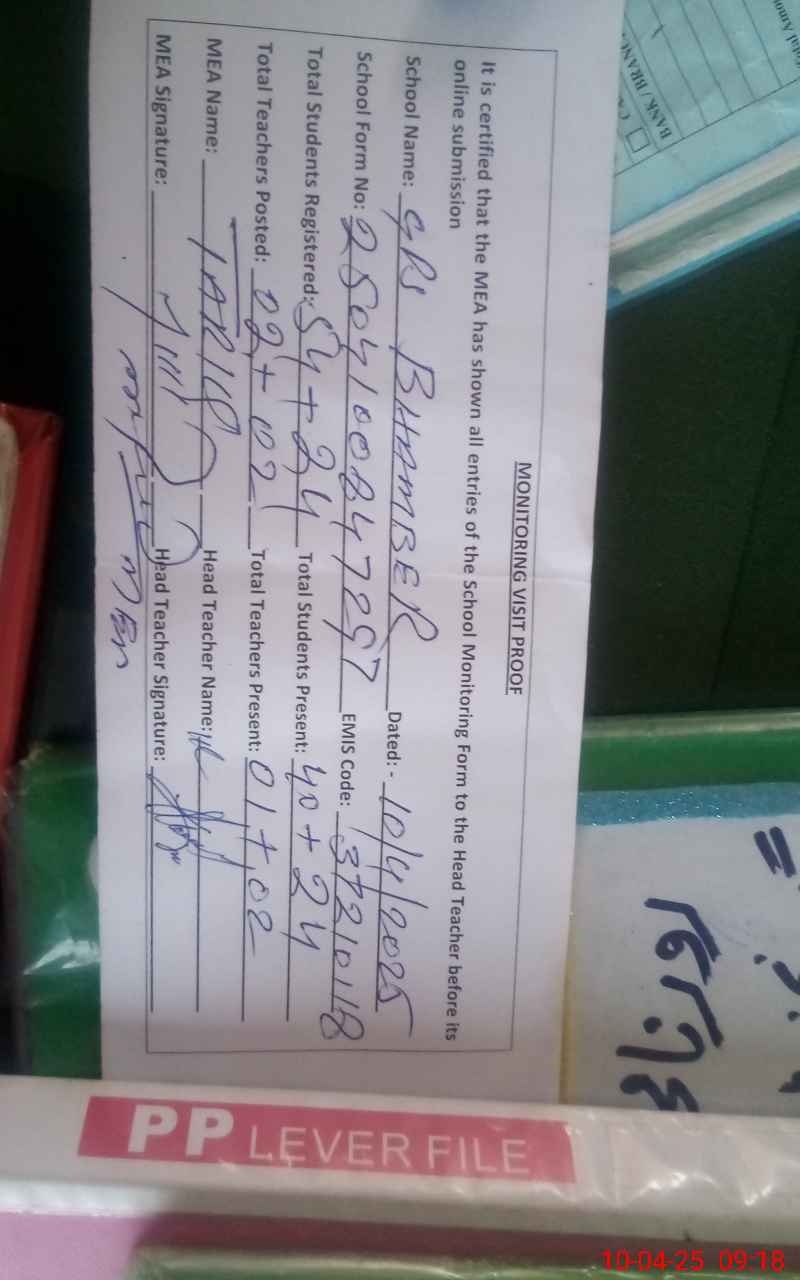 MONITORING VISIT PROOF
It is certified that the MEA has shown all entries of the School Monitoring Form to the Head Teacher before its
online submission
School Name: GPS BHAMBER Dated: - 10/4/2025
School Form No: EMIS Code: 37210118
Total Students Registered: 54 + 24 Total Students Present: 40 + 24
Total Teachers Posted: 02 + 02 Total Teachers Present: 01 + 02
MEA Name: TARIQ Head Teacher Name:
MEA Signature: Head Teacher Signature:
BANK / BRAN
PP LEVER FILE
10-04-25 09:18